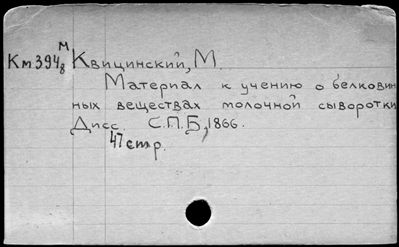 Км394 М/8 Квицинский, М.
Материал к учению о белковин
ных веществах молочной сыворотки
Дисс. С.П.Б, 1866.
47 стр.